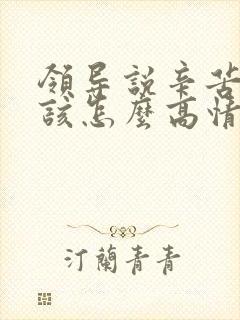 領导説辛苦
該怎麽高情
汀蘭青青